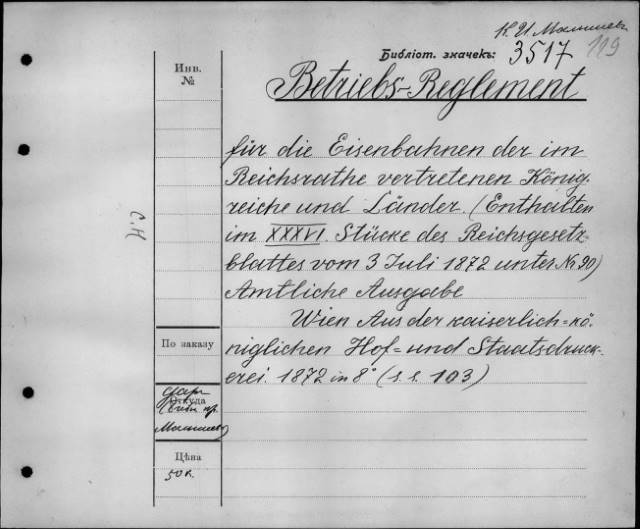 К. И.
Библiот. значекъ: 3517 119
Инв.
№
Betriebs-Reglement
für die Eisenbahnen der im
Reichsrathe vertretenen König-
reiche und Länder. (Enthalten
im XXXVI. Stücke des Reichsgesetz-
blattes vom 3 Juli 1872 unter № 90)
Amtliche Ausgabe
Wien Aus der kaiserlich=kö-
niglichen Hof= und Staatsdruck-
erei. 1872 in 8° (s. s. 103)
С.И
По заказу
Откуда
Цѣна
50 к.